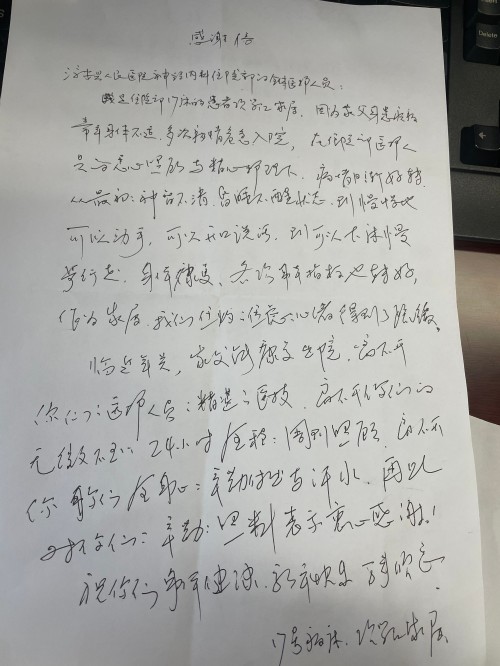 感谢信
人民医院神经内科住院部的全体医护人员:
我是住院部17床的患者 家属。因为家父身患疾病
常年身体不适,多次病情危急入院,在住院部医护人
员 悉心照顾与精心护理下,病情日渐好转,
从最初:神志不清,昏睡不醒状态,到慢慢地
可以动手,可以开口说话,到可以下床慢
慢行走,身体康复,各项身体指标也转好,
作为家属,我们 心 得到了
临近年关,家父 康复出院,离不开
你们:医护人员:精湛:医技,离不开你们的
无微不至:24小时全程:周到照顾,离不开
你们 全身心:辛勤付出与汗水,再此
对你们:辛勤:照料表示衷心感谢!
祝你们身体健康,新年快乐 万事
17号病床, 家属